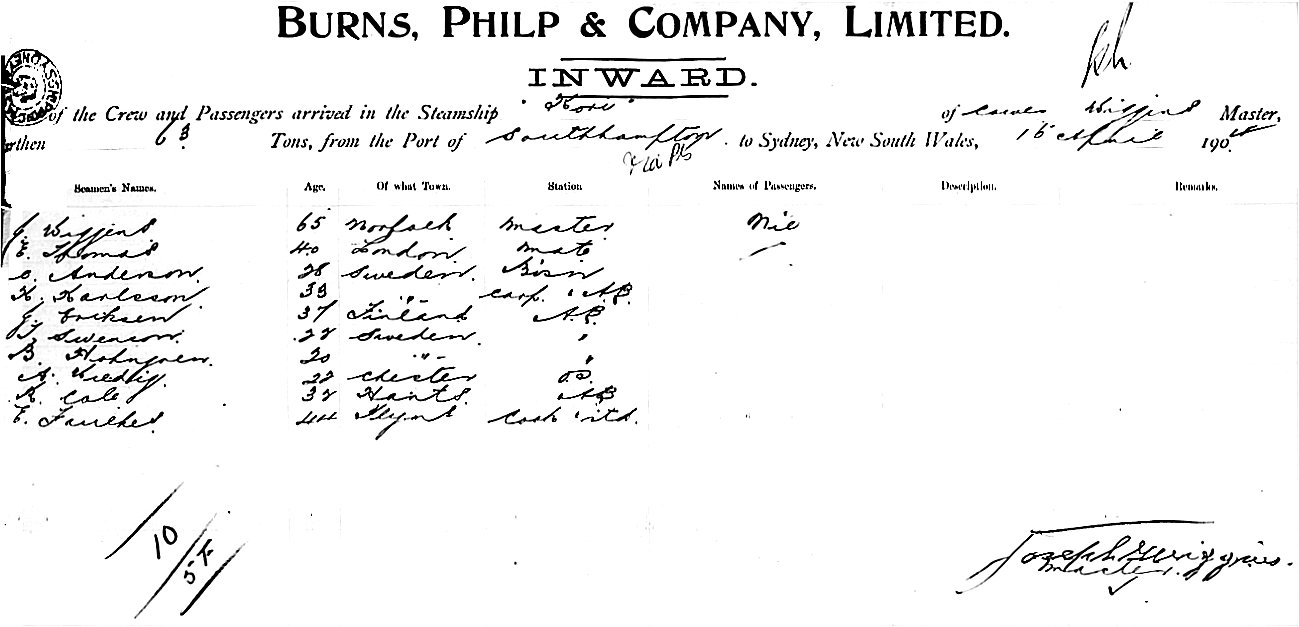 BURNS, PHILP & COMPANY, LIMITED.
INWARD.
of the Crew and Passengers arrived in the Steamship of Cowes Wiggins Master,
then 63 Tons, from the Port of Southhampton to Sydney, New South Wales, 15 April 190
Via Pts
Seamen's Names. Age. Of what Town. Station Names of Passengers. Description. Remarks.
J. Wiggins 65 Norfolk Master Nil
E. Thomas 40 London Mate
Anderson. Sweden. Bosn
K. Karlsson. " Carp. & AB
J. Ericksen 37 Finland A.B.
Swenson. 22 Sweden. "
B. Holmgren. 20 " "
A. 22 Chester O.S.
R. Cole 32 Hants. AB
E. 44 Cook & Std.
10
5 F
Joseph Wiggins.
Master.